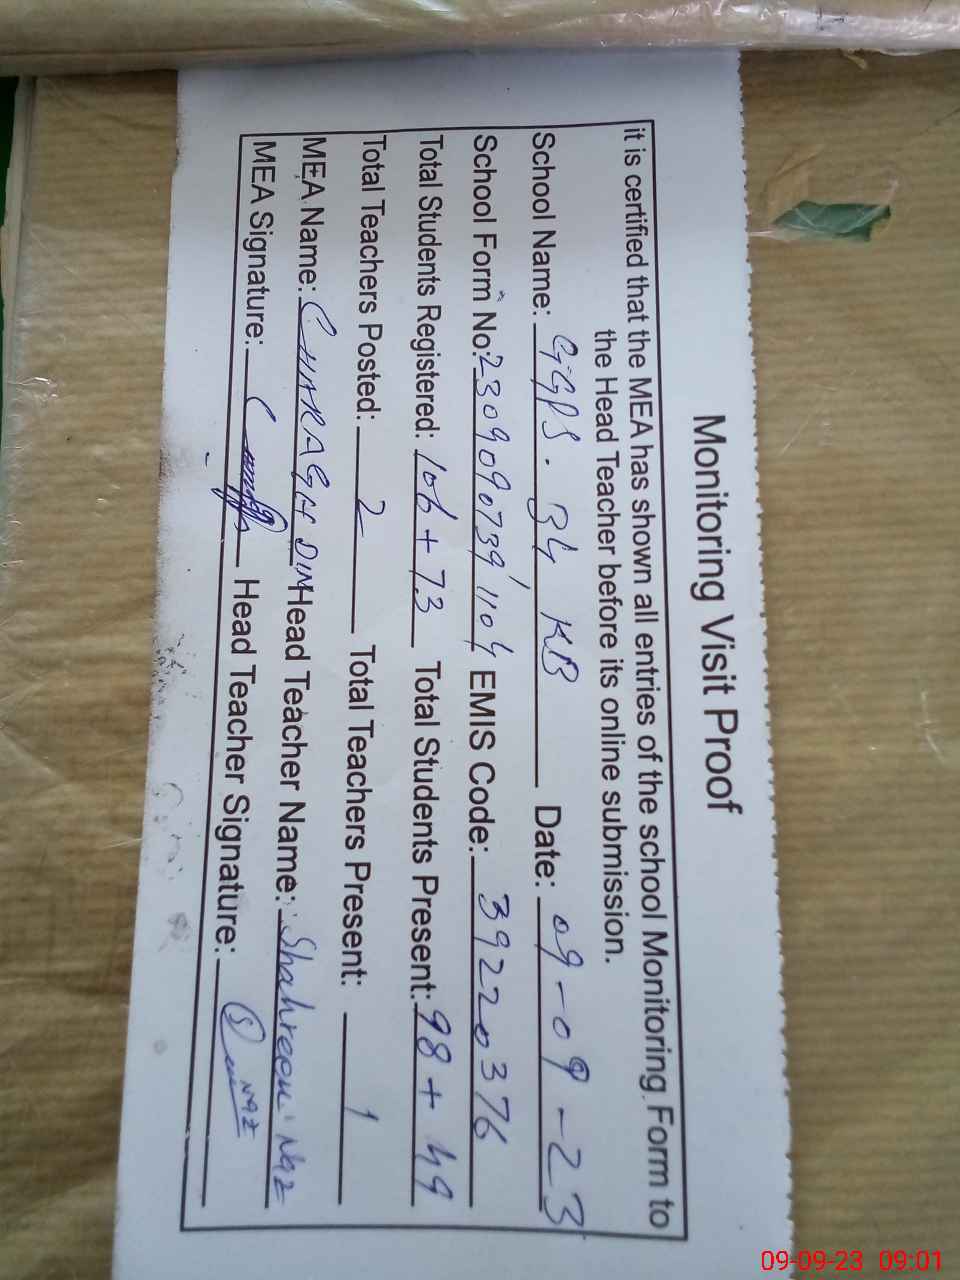 Monitoring Visit Proof
it is certified that the MEA has shown all entries of the school Monitoring Form to
the Head Teacher before its online submission.
School Name: GGPS. 34 KB Date: 09-09-23
School Form No: 23090907391104 EMIS Code: 39220376
Total Students Registered: 106 + 73 Total Students Present: 98 + 49
Total Teachers Posted: 2 Total Teachers Present: 1
MEA Name: CHARAGH DIN Head Teacher Name: Shahreen Naz
MEA Signature: Head Teacher Signature: Naz
09-09-23 09:01